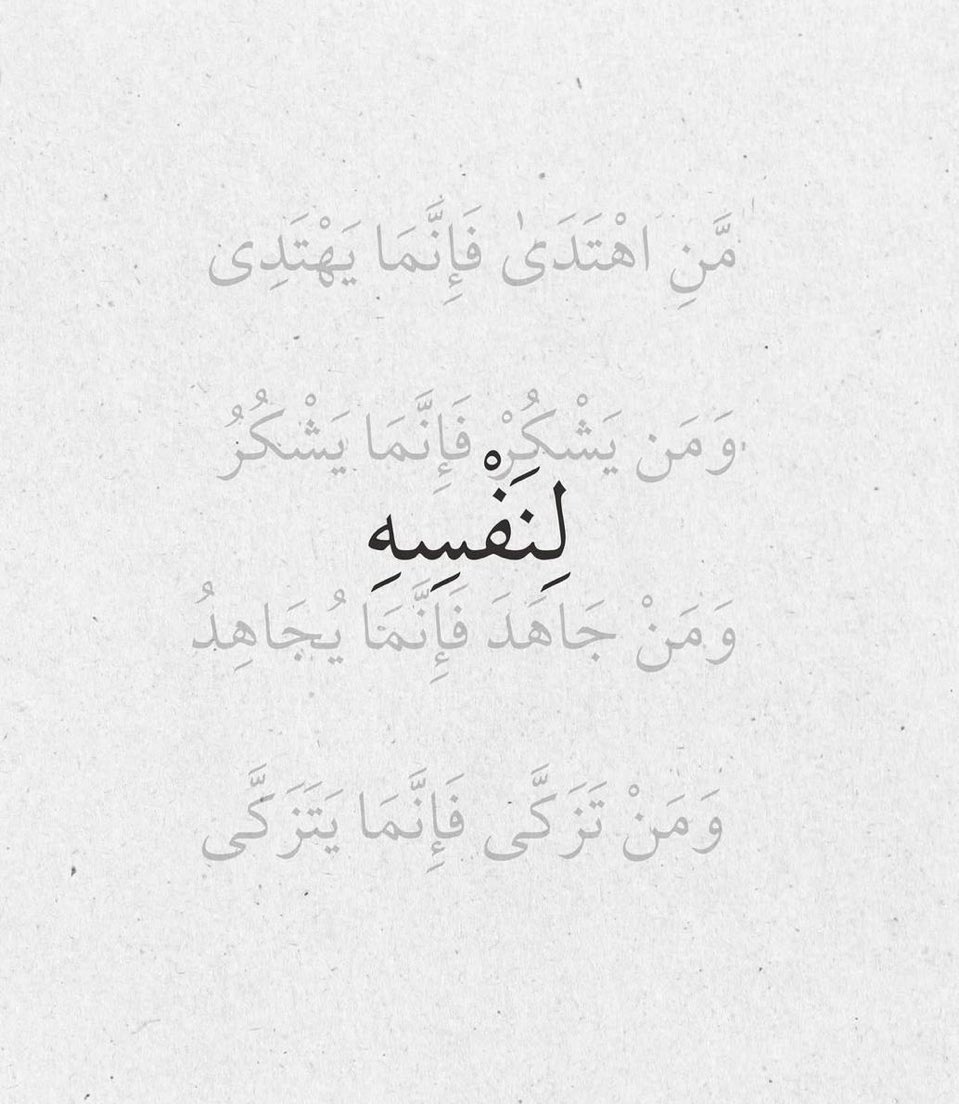 مَّنِ اهْتَدَىٰ فَإِنَّمَا يَهْتَدِى
وَمَن يَشْكُرْ فَإِنَّمَا يَشْكُرُ
لِنَفْسِهِ
وَمَنْ جَاهَدَ فَإِنَّمَا يُجَاهِدُ
وَمَنْ تَزَكَّى فَإِنَّمَا يَتَزَكَّى